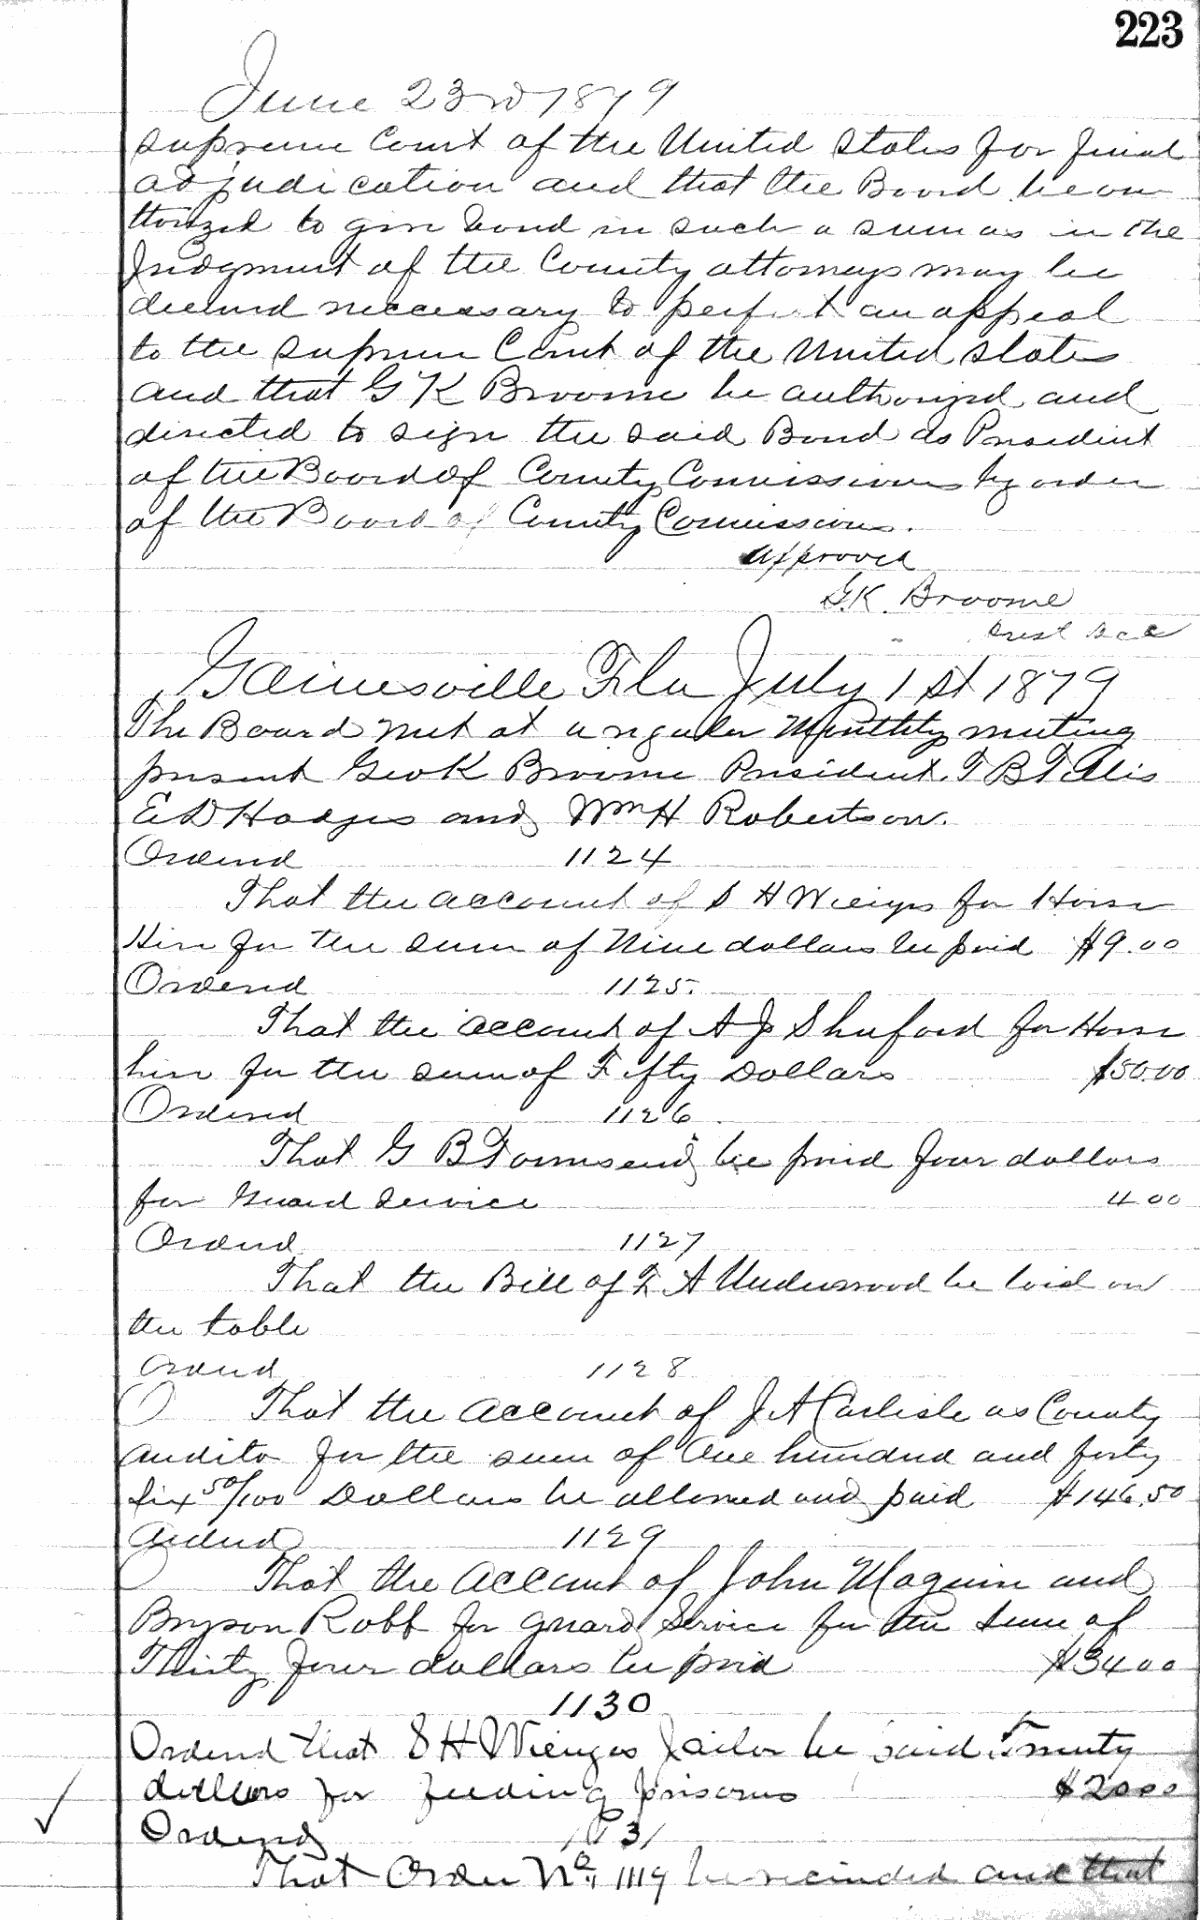 223
June 23rd 1879
supreme Court of the United States for final
adjudication and that the Board be au
thorized to give bond in such a sum as in the
Judgment of the County attorneys may be
deemed neccessary to perfect an appeal
to the supreme Court of the United States
and that G K Broome be authorized and
directed to sign the said Bond as President
of the Board of County Commissioners by order
of the Board of County Commissioners.
Approved
G.K. Broome
Prest BCC
Gainesville Fla July 1st 1879
The Board met at a regular Monthly meeting
present Geo K Broome President. T B
E D Hodges and Wm H Robertson.
Ordered 1124
That the account of S H Wienges for Horse
Hire for the sum of Nine dollars be paid $9.00
Ordered 1125.
That the account of A J Shuford for Horse
hire for the sum of Fifty Dollars $50.00
Ordered 1126
That G B Townsend be paid four dollars
for Guard Service 4 00
Ordered 1127
That the Bill of F A Underwood be laid on
the table
Ordered 1128
That the account of J A Carlisle as County
auditor for the sum of One hundred and forty
six 50/100 Dollars be allowed and paid $146.50
Ordered 1129
That the account of John Maguire and
Bryson Robb for guard Service for the sum of
Thirty four dollars be paid $34 00
1130
Ordered that S H Wienges Jailor be paid Twenty
dollars for feeding prisoners $20 00
Ordered 1131
That Order No. 1119 be recinded and that